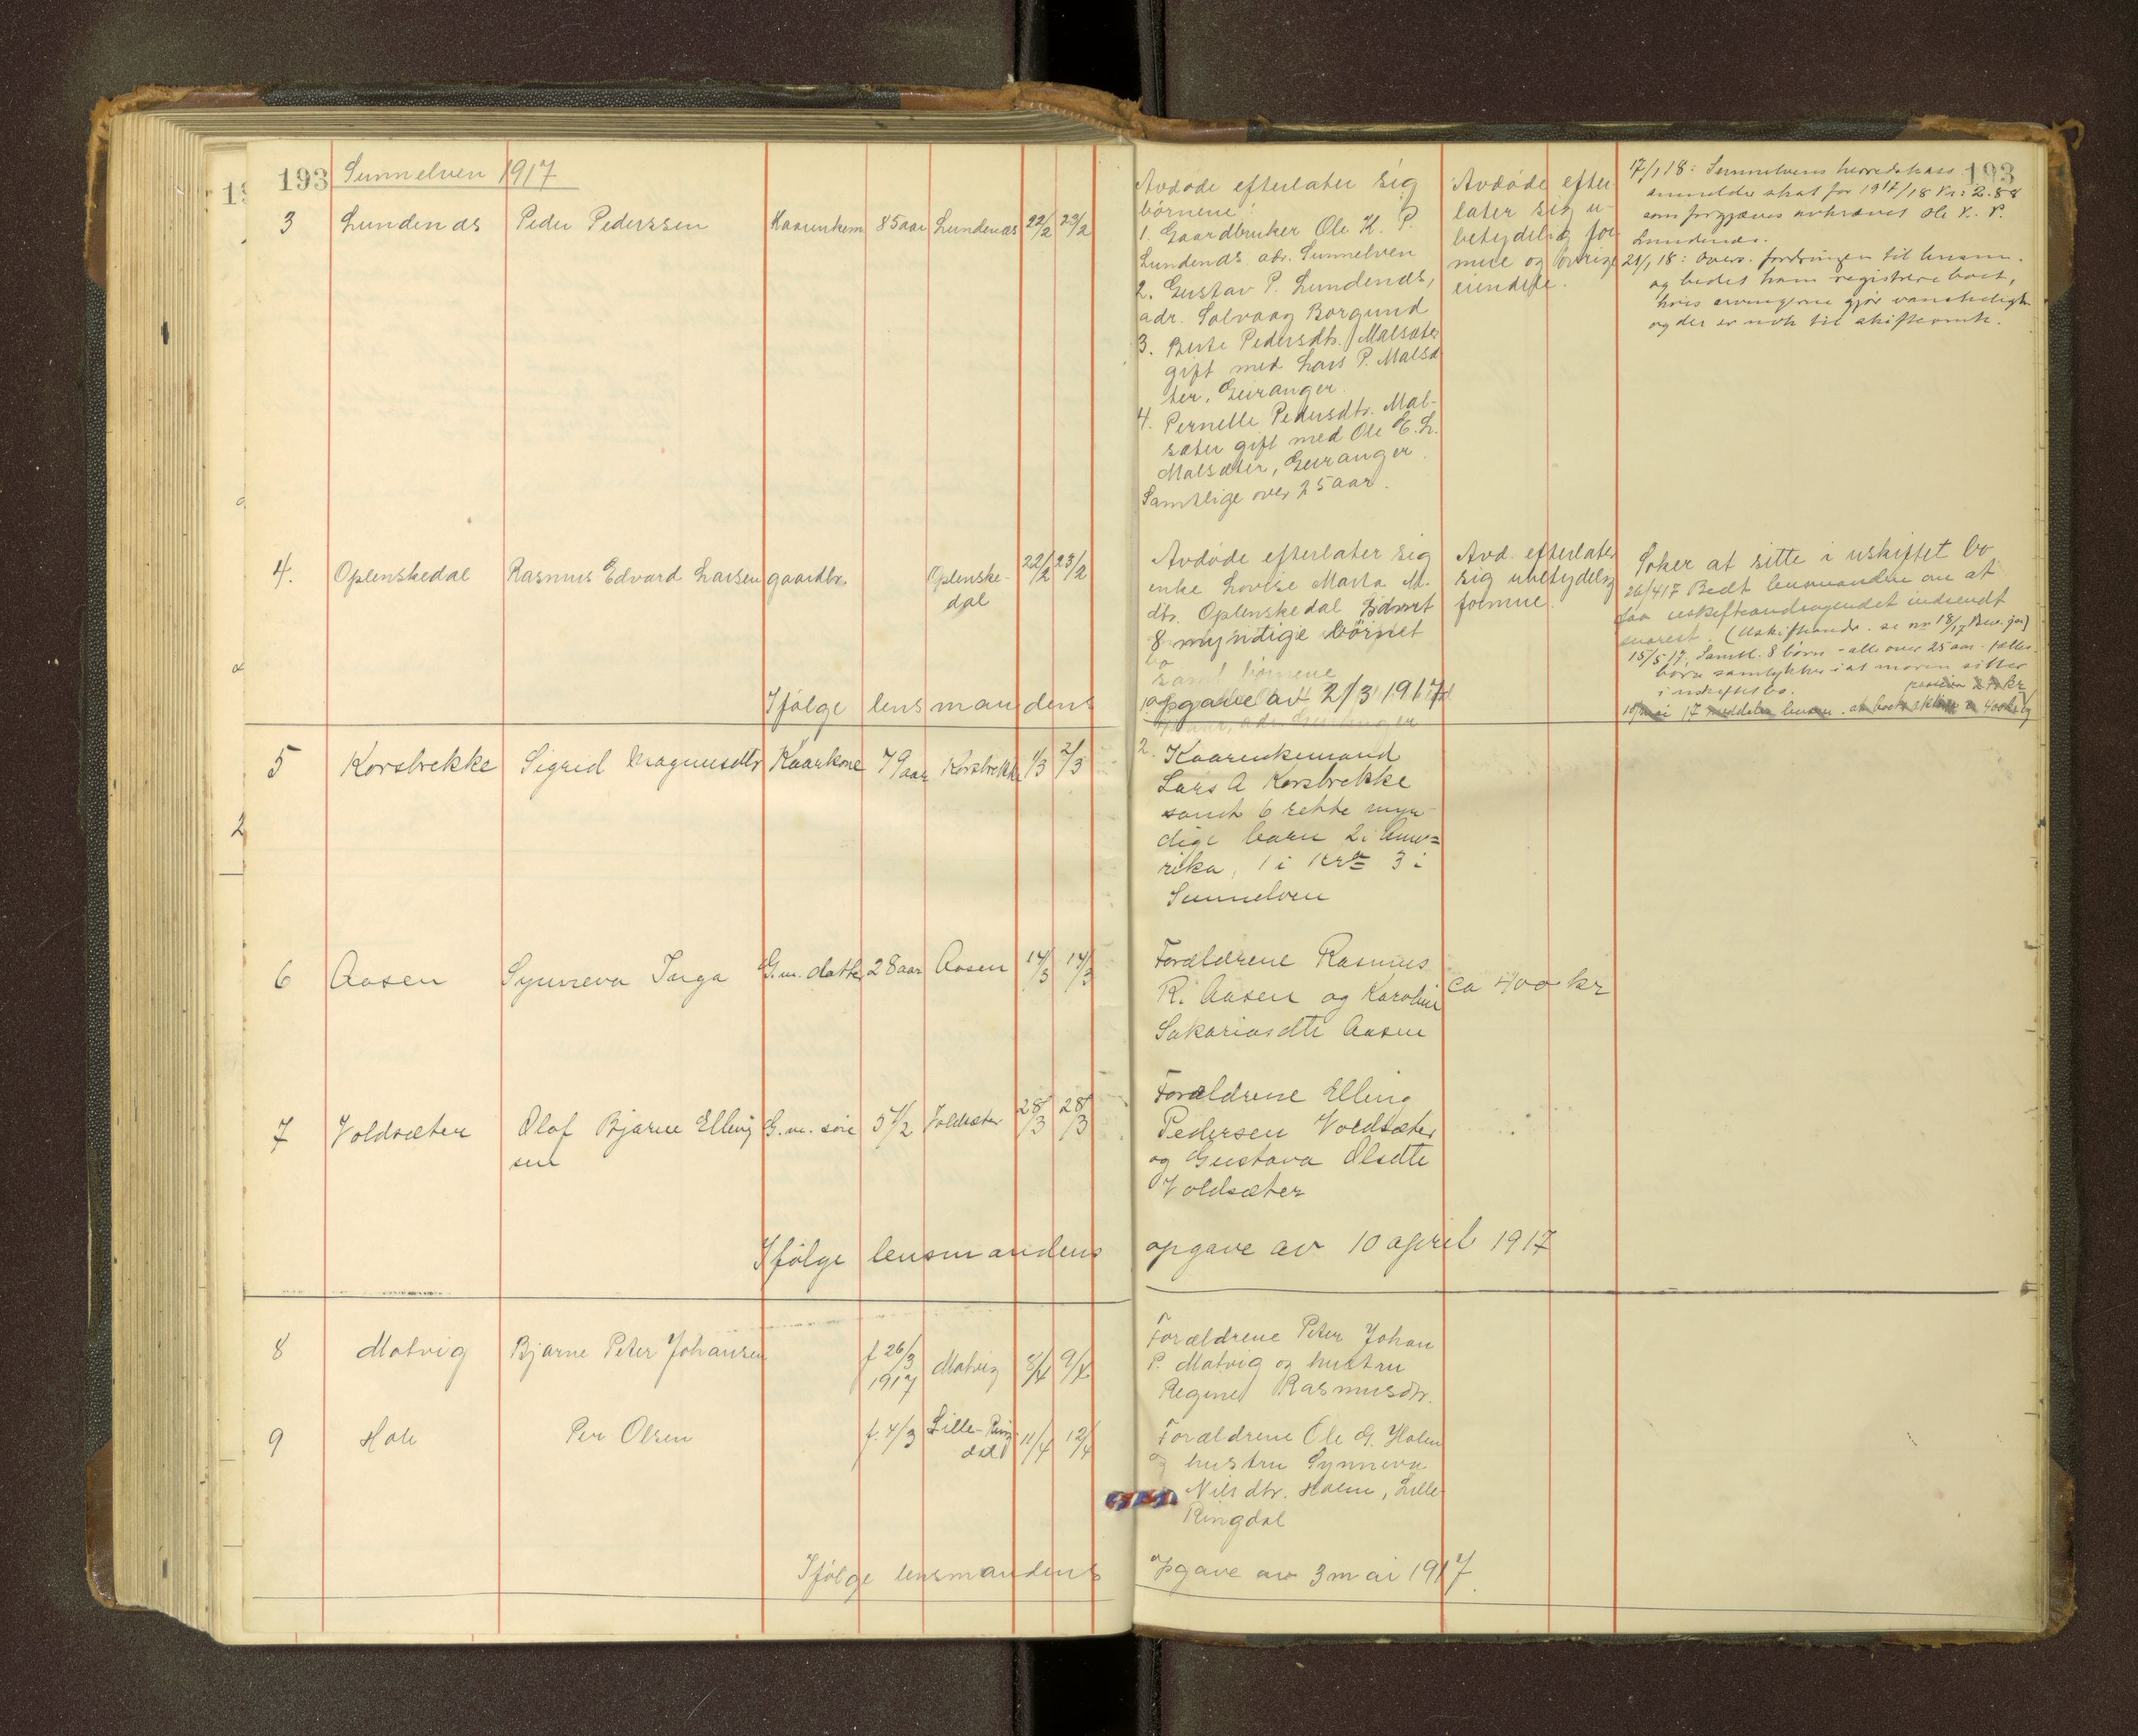 193 Sunnelven 1917
3 Lundenæs Peder Pederssen Kaarenkem 85 aar Lundenæs 22/2 23/2
Avdøde efterlater sig
børnene:
1. Gaardbruker Ole K. P.
Lundenæs adr. Sunnelven
2. Gustav P. Lundenæs,
adr. Solvaag Borgund
3. Berte Pedersdtr. Malsæter
gift med Lars P. Malsæ
ter, Geiranger
4. Pernelle Pedersdtr. Mal-
sæter gift med Ole E. L.
Malsæter, Geiranger.
Samtlige over 25 aar.
Avdøde efter-
later sig u-
betydelig for
mue og øvrige
eiendele.
193
17/1 18: Sunnelvens herredskass.
anmelder skat for 1917/18 Kr: 2.88
som forgjæves avkrævet Ole K. P.
Lundenæs.
21/1 18: Overs. fordringen til lensm.
og bedet ham registrere boet,
hvis arvingerne gjør vanskeligh.
og der er nok til skifteomk.
4. Oplenskedal Rasmus Edvard Larsen gaardbr. Oplenske- 22/2 23/2
dal
Avdøde efterlater sig
enke Lovise Marta M.
dtr. Oplenskedal
8 myndige børn
samt børnene
Avd. efterlater
sig ubetydelig
formue.
Søker at sitte i uskiftet bo
26/4 17 Bedt lensmanden om at
faa uskifteandragendet indsendt
snarest. (Uskifteandr. se nr 18/17 Bev. jnr)
15/5 17. Samtl. 8 børn - alle over 25 aar - fælles
børn samtykker i at moren sitter
i uskiftet bo.
Ifølge lensmandens opgave av 2/3 1917
5 Korsbrekke Sigrid Magnusdtr Kaarkone 79 aar Korsbrekke 1/3 2/3
2. Kaarenkemand
Lars A Korsbrekke
samt 6 rette myn-
dige barn 2 i Ame=
rika, 1 i 3 i
Sunnelven
6 Aasen Synneva Inga G.m. datter 28 aar Aasen 14/3 14/3
Forældrene Rasmus
R. Aasen og Karoline
Sakariasdtr Aasen
ca 400 kr
7 Voldsæter Olaf Bjarne Elling G.m. søn 5 1/2 Voldsæter 28/3 28/3
sen
Forældrene Elling
Pedersen Voldsæter
og Gustava Olsdtr
Voldsæter
Ifølge lensmandens opgave av 10 april 1917
8 Matvig Bjarne Peter Johansen f 26/3 Matvig 8/4 9/4
1917
Forældrene Peter Johan
P. Matvig og hustru
Regine Rasmusdtr.
9 Hole Per Olsen f. 4/3 Lille-Ring 11/4 12/4
dal
Forældrene Ole G. Holen
og hustru Synneva
Nilsdtr. Holen, Lille
Ringdal
Ifølge lensmandens opgave av 3 mai 1917.